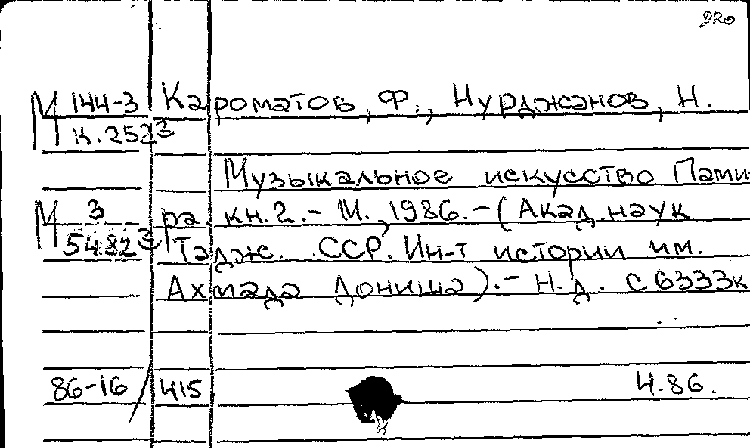 920
М 144-3 Кароматов, Ф., Нурджанов, Н.
К.2523
Музыкальное искусство Пами-
М 3 ра. кн.2. - М., 1986. - (Акад.наук
54823 Тадж. ССР. Ин-т истории им.
Ахмада Дониша). - Н.д. с 6333к
86-16 / 415 4.86.